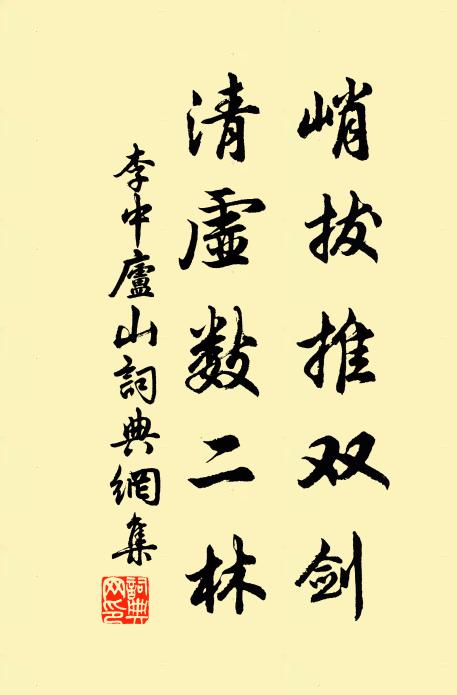 峭拔推双剑
清虚数二林
李中廬山詞典網集
詞典网印